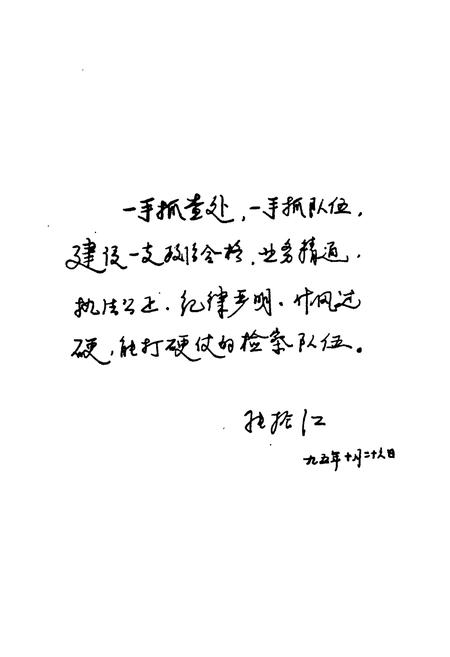 一手抓查处,一手抓队伍,
建设一支政治合格、业务精通、
执法公正、纪律严明、作风过
硬,能打硬仗的检察队伍。
江
九五年十月二十八日